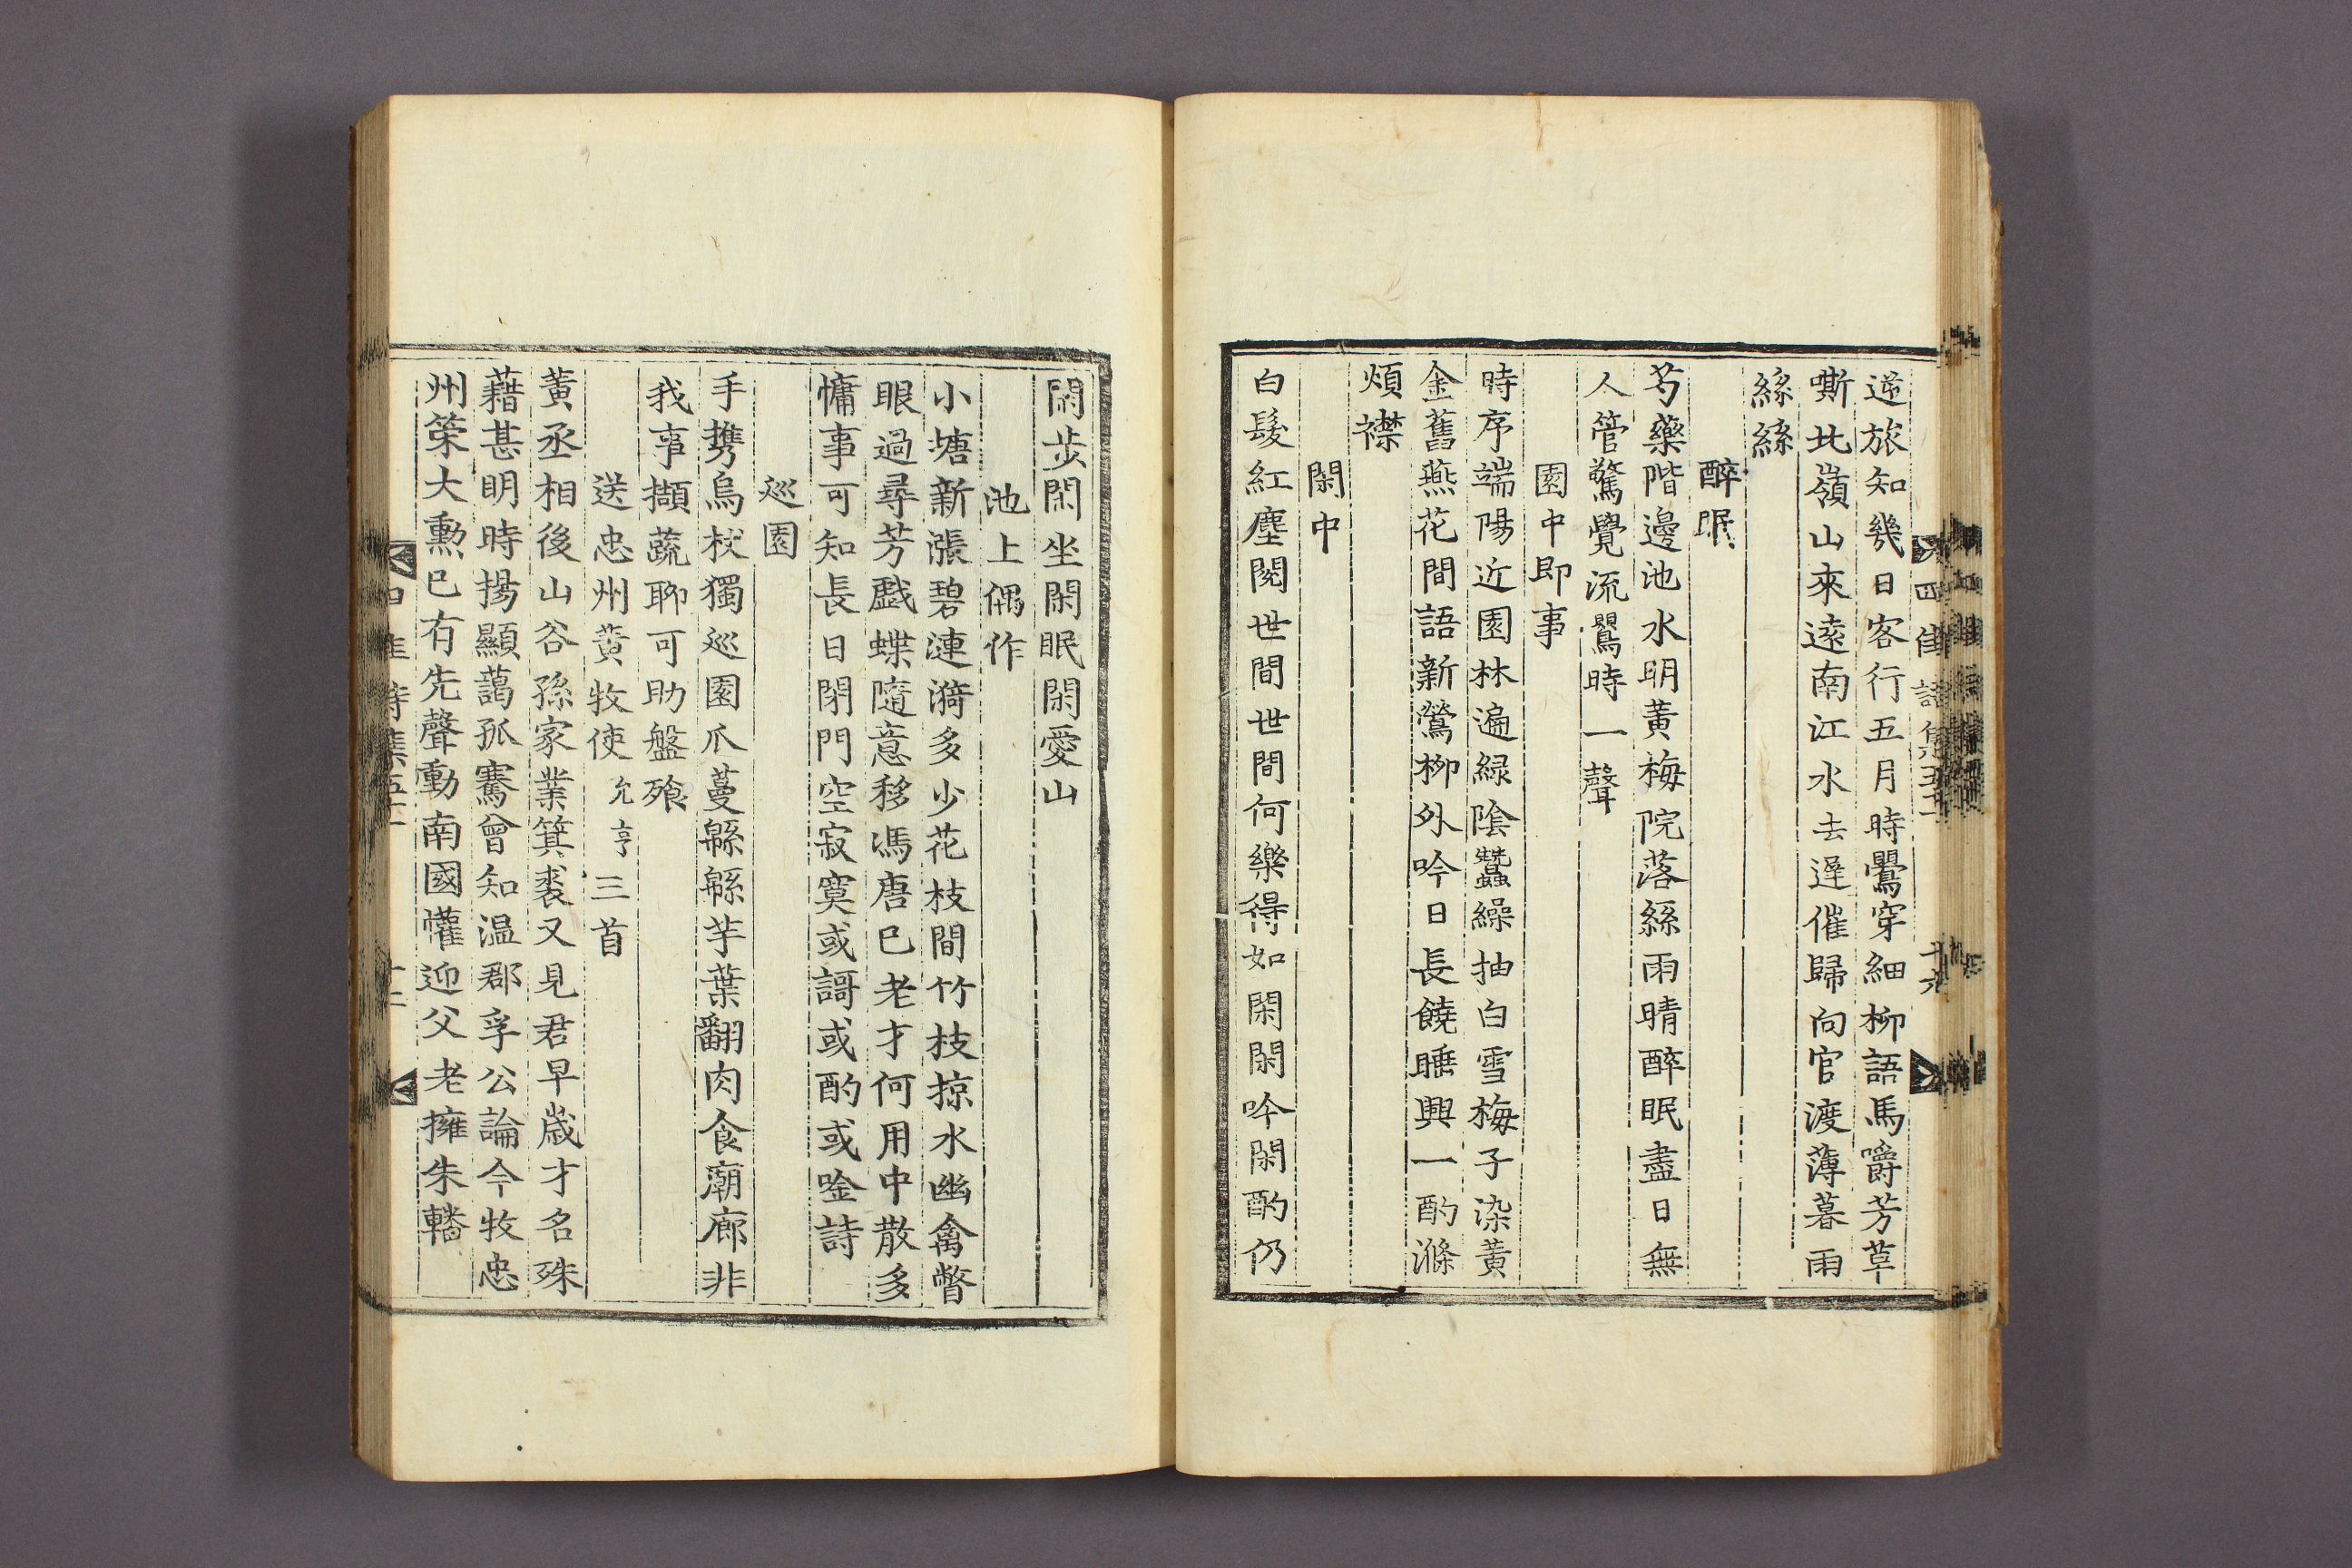 逆旅知幾日客行五月時鸎穿細柳語馬嚼芳草
嘶北嶺山來遠南江水去遲催歸向官渡薄暮雨
絲絲
醉眠
芍藥階邊池水明黃梅院落絲雨晴醉眠盡日無
人管驚覺流鸎時一聲
園中即事
時序端陽近園林遍綠陰蠶繰抽白雪梅子染黃
金舊燕花間語新鶯柳外吟日長饒睡興一酌滌
煩襟
閑中
白髮紅塵閱世間世間何樂得如閑閑吟閑酌仍
閑步閑坐閑眠閑愛山
池上偶作
小塘新漲碧漣漪多少花枝間竹枝掠水幽禽瞥
眼過尋芳戲蝶隨意移馮唐已老才何用中散多
慵事可知長日閉門空寂寞或謌或酌或唫詩
巡園
手携烏杖獨巡園爪蔓緜緜芋葉翻肉食廟廊非
我事擷蔬聊可助盤飱
送忠州黃牧使允亨三首
黃丞相後山谷孫家業箕裘又見君早歲才名殊
藉甚明時揚顯藹孤騫曾知温郡孚公論今牧忠
州策大勳已有先聲動南國懽迎父老擁朱轓